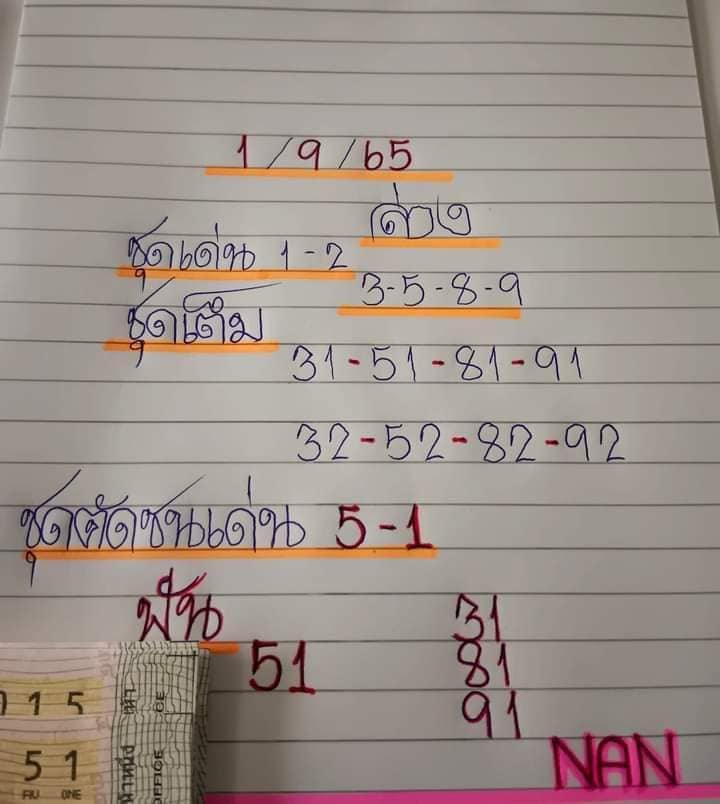 1/9/65
ล่าง
ชุดเด่น 1-2
3-5-8-9
ชุดเต็ม
31-51-81-91
32-52-82-92
ชุดตัดชนเด่น 5-1
ฟัน
51
31
81
91
1 5
5 1
ONE
OFFICE
NAN